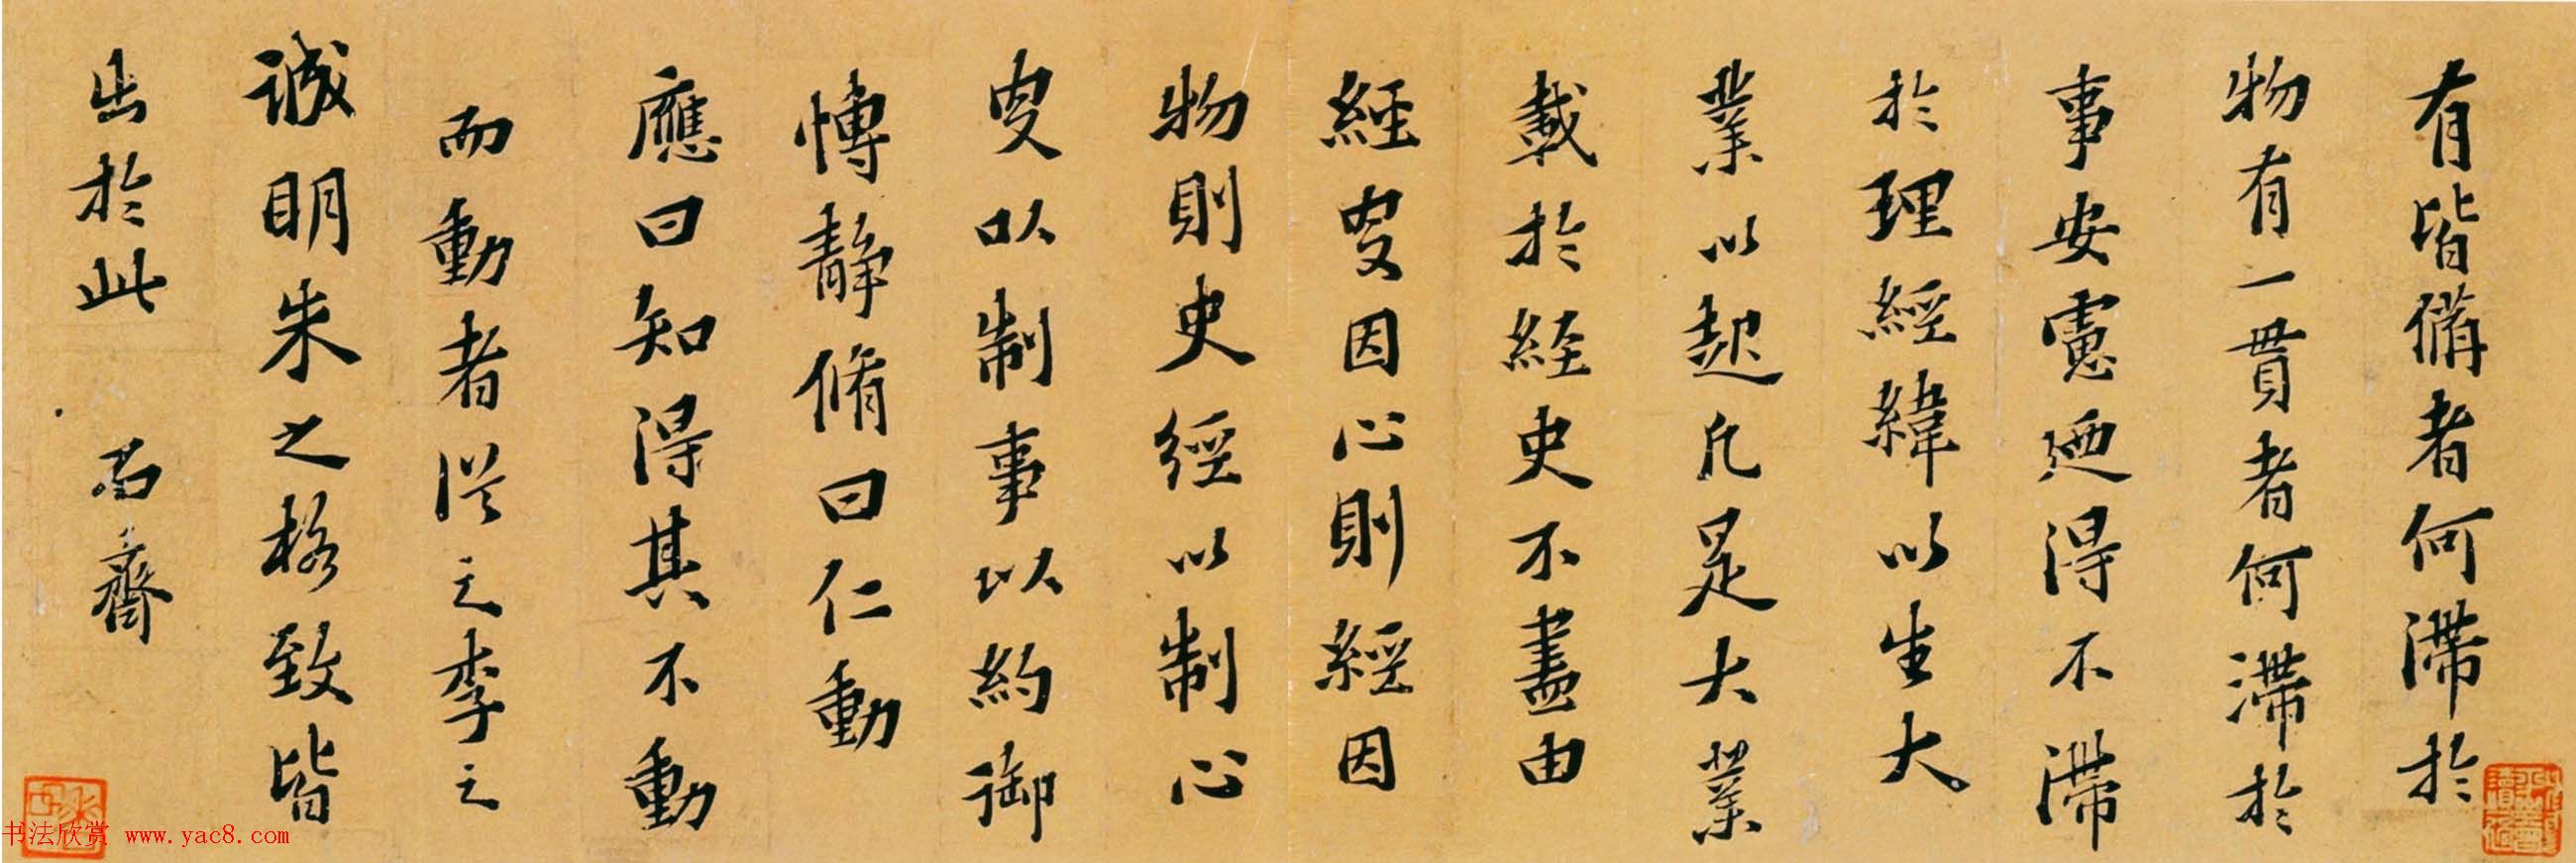 有皆備者何滯於
物有一貫者何滯於
事安慮廼得不滯
於理經緯以生大
業以起凡是大業
載於經史不盡由
經叓因心則經因
物則史經以制心
叓以制事以約御
愽靜脩曰仁動
應曰知得其不動
而動者從之李之
誠明朱之格致皆
出於此 石齋
书法欣赏 www.yac8.com